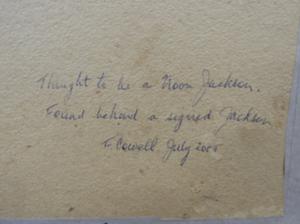 Thought to be a Noon Jackson.
Found behind a signed Jackson
F. Cowell July 2005